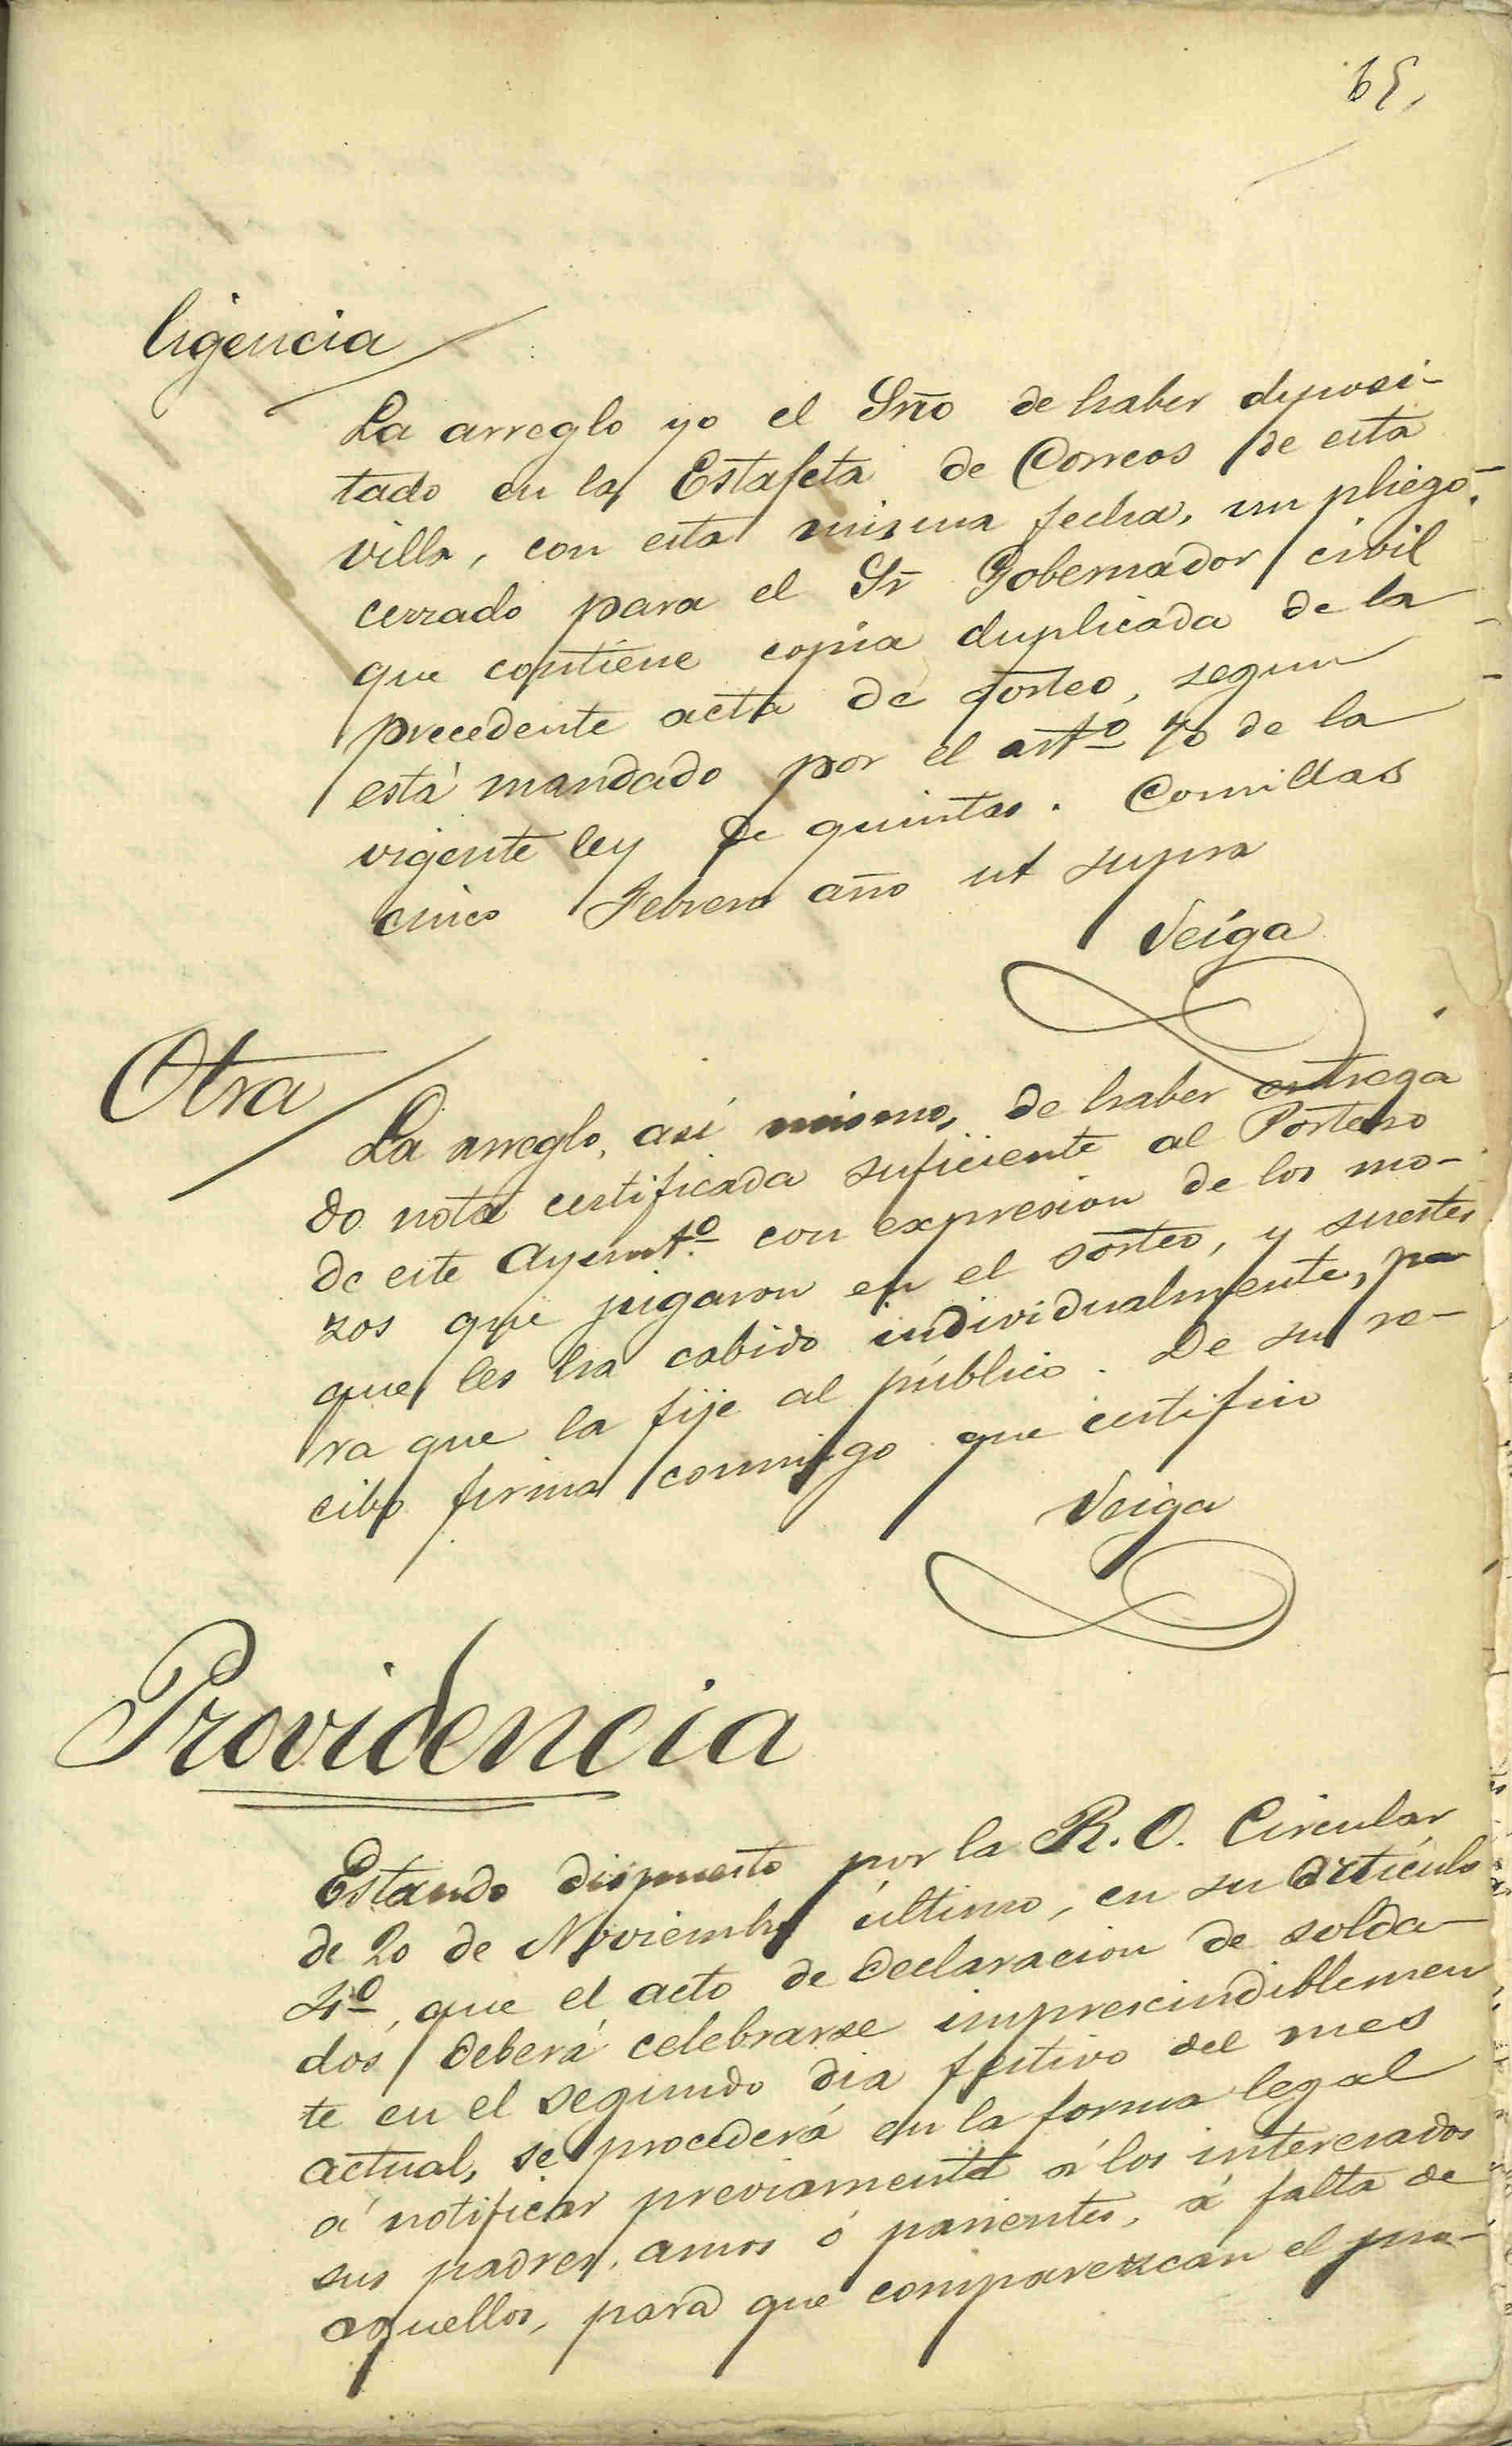 65,
ligencia
La arreglo yo el Srio de haber deposi-
tado en la Estafeta de Correos de esta
villa, con esta misma fecha, un pliego
cerrado para el Sr Gobernador civil
que contiene copia duplicada de la
precedente acta de sorteo, segun
está mandado por el artº 70 de la
vigente ley de quintas. Comillas
cinco Febrero año ut supra
Veiga
Otra
La arreglo, así mismo, de haber entrega
do nota certificada suficiente al Portero
de este Ayuntº con expresion de los mo-
zos que jugaron en el sorteo, y suertes
que les ha cabido individualmente, pa
ra que la fije al público. De su re-
cibo firma conmigo que certifico
Veiga
Providencia
Estando dispuesto por la R. O. Circular
de 20 de Noviembre último, en su artículo
4º, que el acto de declaracion de solda-
dos deberá celebrarse imprescindiblemen
te en el segundo dia festivo del mes
actual, se procederá en la forma legal
á notificar previamente á los interesados
sus padres, amos ó parientes, á falta de
aquellos, para que comparezcan el pro-